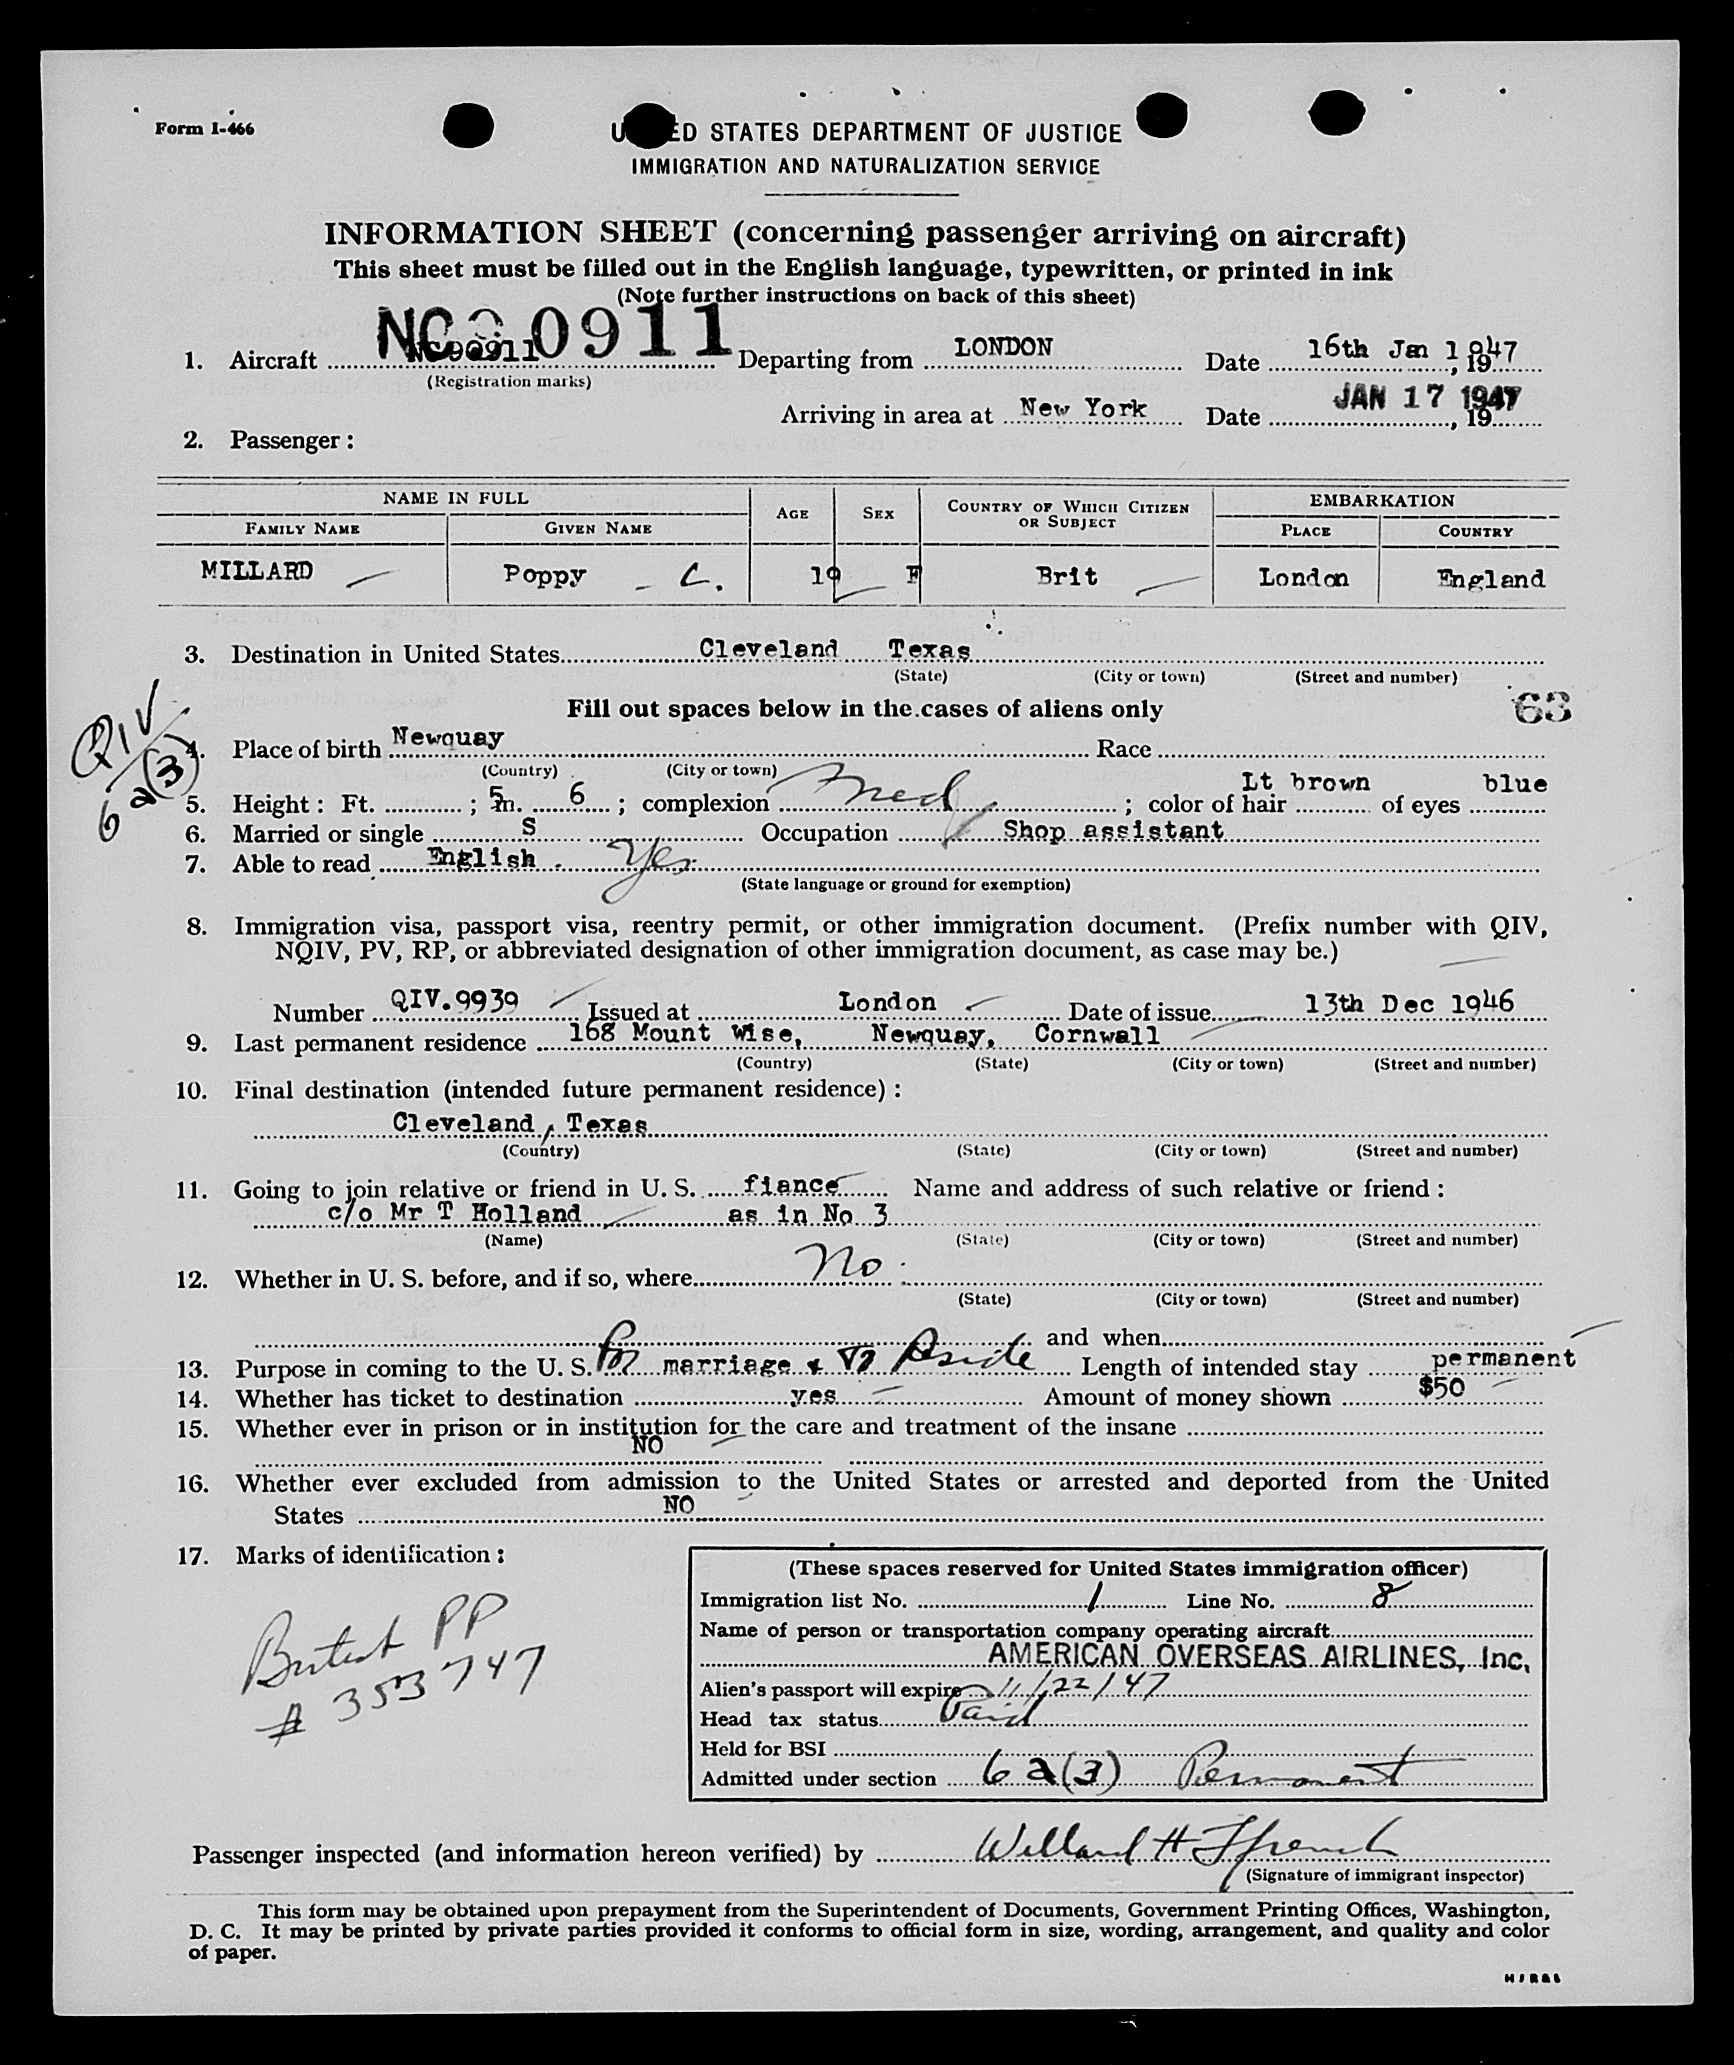 Form I-466
UNITED STATES DEPARTMENT OF JUSTICE
IMMIGRATION AND NATURALIZATION SERVICE
INFORMATION SHEET (concerning passenger arriving on aircraft)
This sheet must be filled out in the English language, typewritten, or printed in ink
(Note further instructions on back of this sheet)
NC90911
1. Aircraft NC90911 Departing from LONDON Date 16th Jan 1947, 19
(Registration marks)
Arriving in area at New York Date JAN 17 1947, 19
2. Passenger:
NAME IN FULL AGE SEX COUNTRY OF WHICH CITIZEN OR SUBJECT EMBARKATION
FAMILY NAME GIVEN NAME PLACE COUNTRY
MILLARD Poppy - C. 19 F Brit London England
3. Destination in United States Cleveland Texas
(State) (City or town) (Street and number)
Fill out spaces below in the cases of aliens only 63
QIV
6a(3)
4. Place of birth Newquay Race
(Country) (City or town)
5. Height: Ft. ; 5 In. 6 ; complexion Med ; color of hair Lt brown of eyes blue
6. Married or single S Occupation Shop assistant
7. Able to read English. Yes
(State language or ground for exemption)
8. Immigration visa, passport visa, reentry permit, or other immigration document. (Prefix number with QIV,
NQIV, PV, RP, or abbreviated designation of other immigration document, as case may be.)
Number QIV.9939 Issued at London Date of issue 13th Dec 1946
9. Last permanent residence 168 Mount Wise, Newquay, Cornwall
(Country) (State) (City or town) (Street and number)
10. Final destination (intended future permanent residence):
Cleveland, Texas
(Country) (State) (City or town) (Street and number)
11. Going to join relative or friend in U. S. fiance Name and address of such relative or friend:
c/o Mr T Holland as in No 3
(Name) (State) (City or town) (Street and number)
12. Whether in U. S. before, and if so, where No
(State) (City or town) (Street and number)
and when
13. Purpose in coming to the U. S. For marriage & to Reside Length of intended stay permanent
14. Whether has ticket to destination yes Amount of money shown $50
15. Whether ever in prison or in institution for the care and treatment of the insane
NO
16. Whether ever excluded from admission to the United States or arrested and deported from the United
States NO
17. Marks of identification:
British PP
# 353747
(These spaces reserved for United States immigration officer)
Immigration list No. 1 Line No. 8
Name of person or transportation company operating aircraft
AMERICAN OVERSEAS AIRLINES, Inc.
Alien's passport will expire 11/22/47
Head tax status Paid
Held for BSI
Admitted under section 6a(3) Permanent
Passenger inspected (and information hereon verified) by Willard H Ffrench
(Signature of immigrant inspector)
This form may be obtained upon prepayment from the Superintendent of Documents, Government Printing Offices, Washington,
D. C. It may be printed by private parties provided it conforms to official form in size, wording, arrangement, and quality and color
of paper.